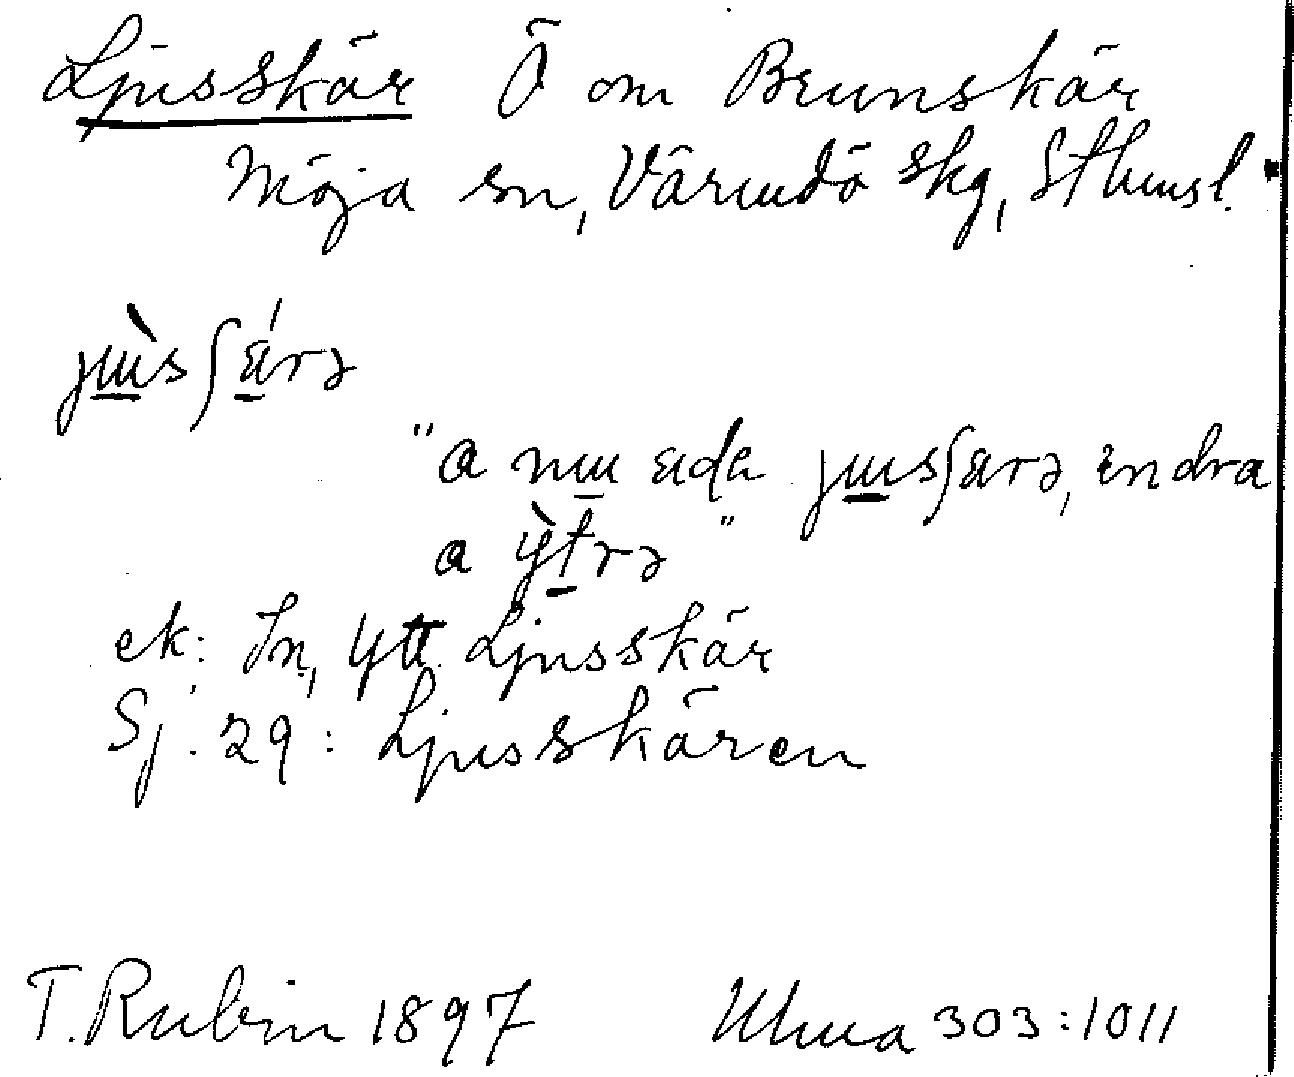 Ljusskär Ö om Brunskär
Möja sn, Värmdö skg, Sthmsl.
jɯ̀sʃǽrə
"a nɯ ade jɯsʃærə, endra
a ỳtrə"
ek: In, Ytt. Ljusskär
Sj. 29: Ljusskären
T. Rubin 1897 Ulma 303:1011